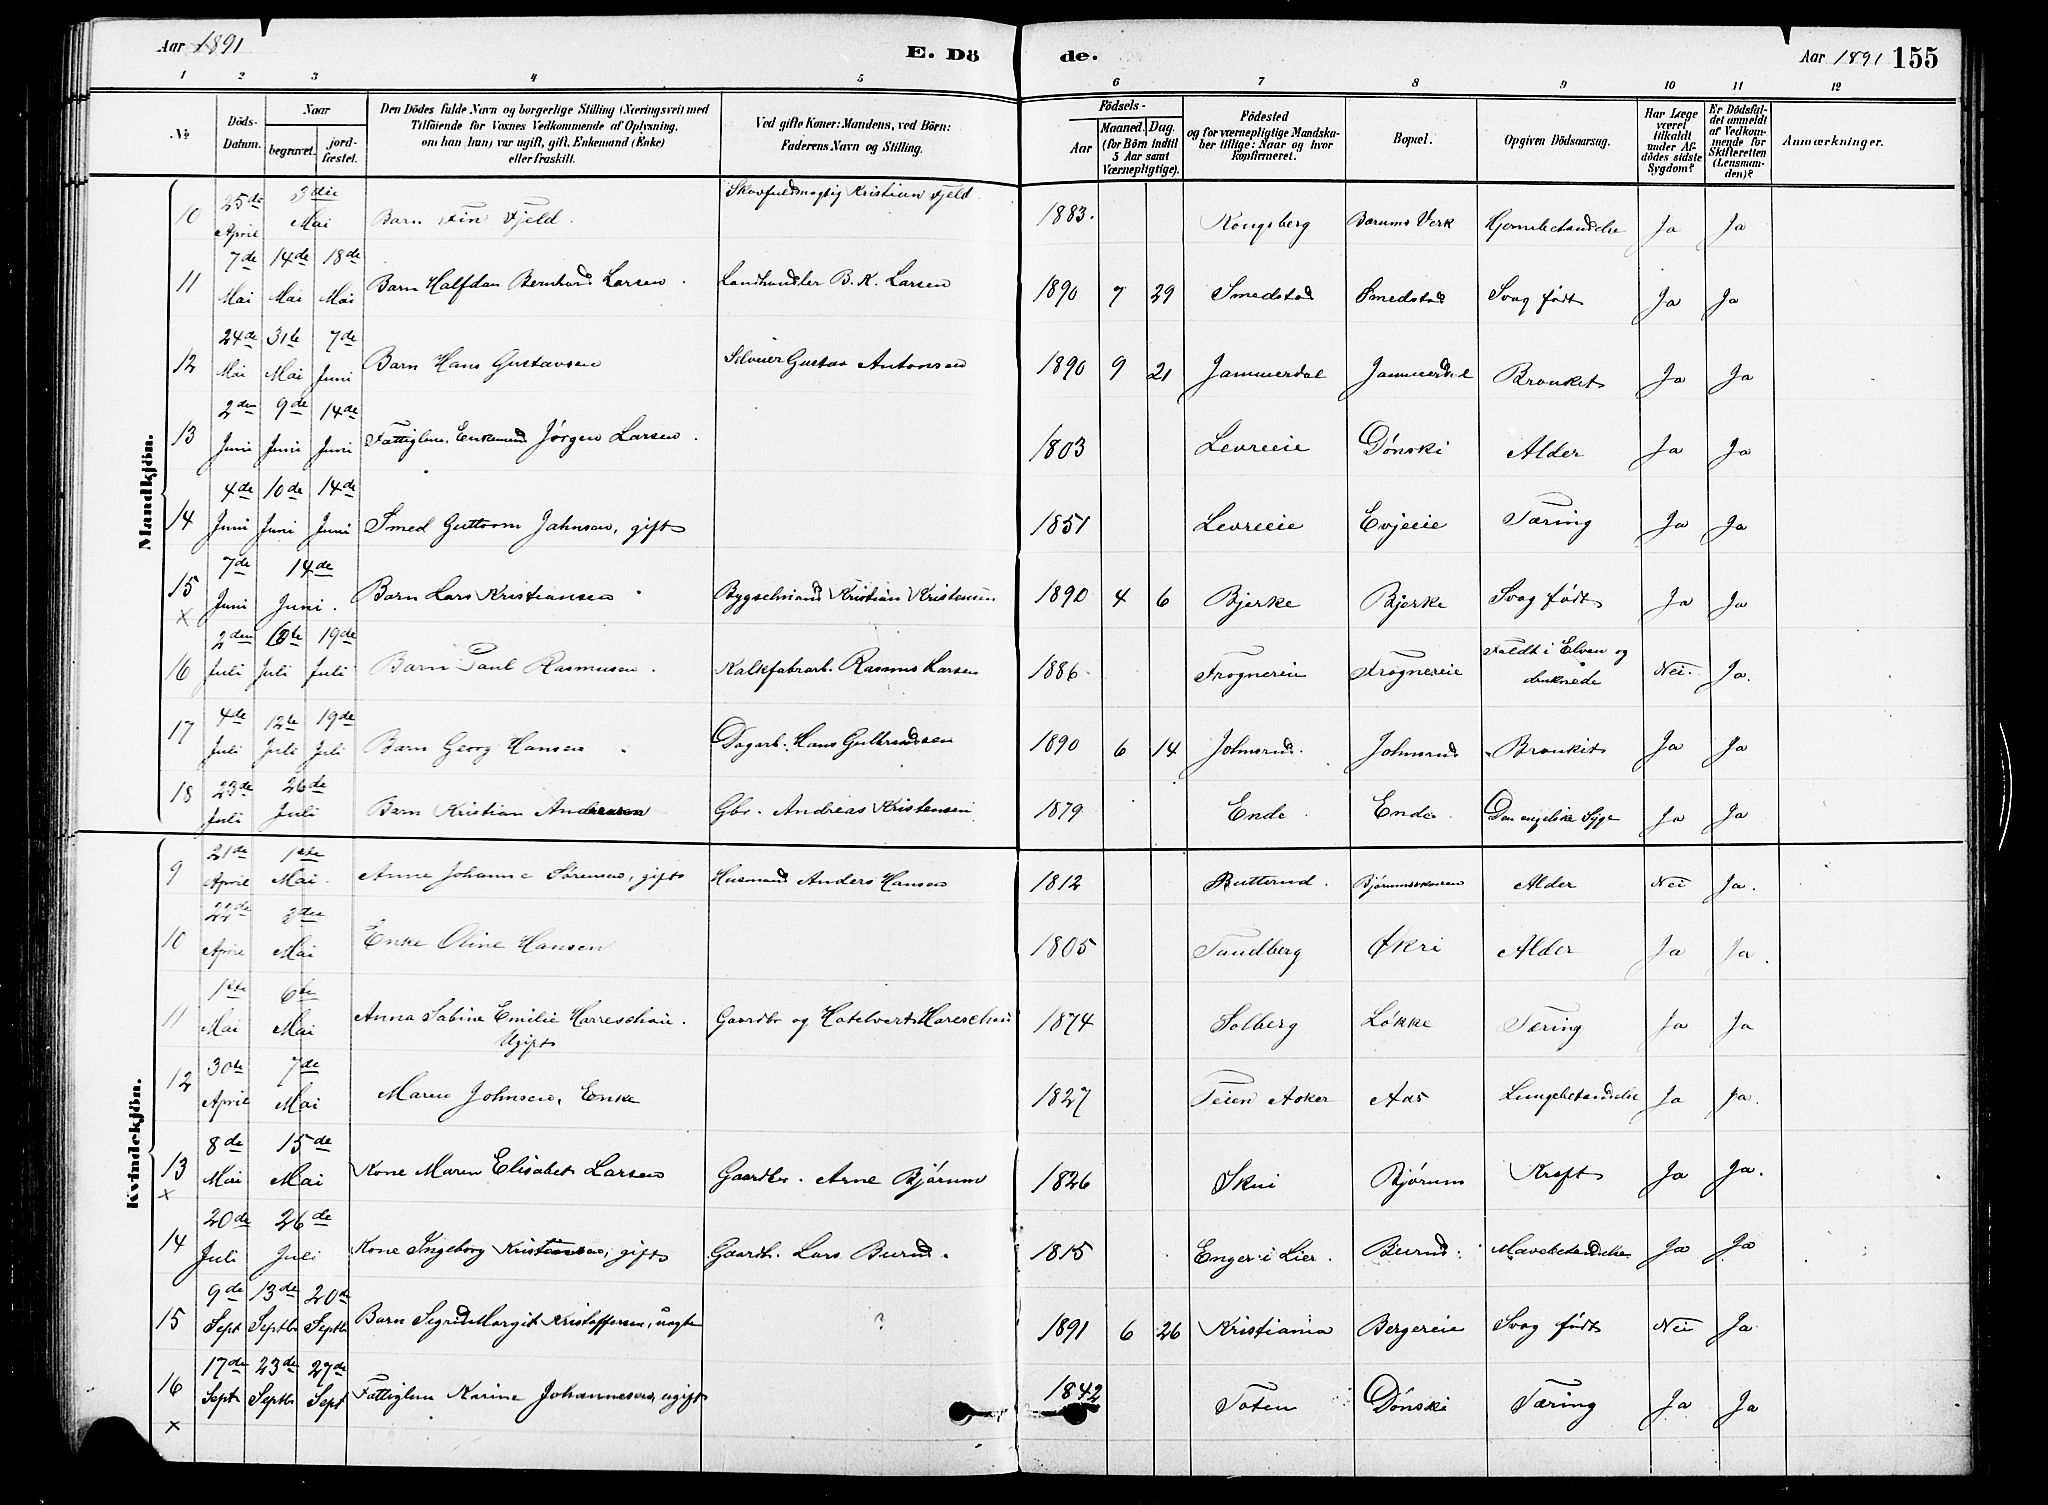 Aar 1891
E. Dö
de.
Aar 1891 155
1 2 3 4 5 6 7 8 9 10 11 12
No
Döds-Datum.
Naar
begravet.
jord-fæstet.
Den Dödes fulde Navn og borgerlige Stilling (Næringsvei) med
Tilföiende for Voxnes Vedkommende af Oplysning,
om han (hun) var ugift, gift, Enkemand (Enke)
eller fraskilt.
Ved gifte Koner: Mandens, ved Börn:
Faderens Navn og Stilling.
Födsels-
Aar
Maaned. Dag.
(for Börn indtil
5 Aar samt
Værnepligtige).
Födested
og for værnepligtige Mandska-
ber tillige: Naar og hvor
konfirmeret.
Bopæl.
Opgiven Dödsaarsag.
Har Læge
været
tilkaldt
under Af-
dödes sidste
Sygdom?
Er Dödsfal-
det anmeldt
af Vedkom-
mende for
Skifteretten
(Lensman-
den)?
Anmærkninger.
Mandkjön.
10 25de April 3die Mai Barn Fin Fjeld. Skovfuldmægtig Kristian Fjeld 1883. Kongsberg Bærums Verk Hjernebetændelse Ja Ja
11 7de Mai 14de Mai 18de Mai Barn Halfdan Bernhard Larsen. Landhandler B. K. Larsen 1890 7 29 Smedstad Smedstad Svag født Ja Ja
12 24de Mai 31te Mai 7de Juni Barn Hans Gustavsen Selveier Gustav Antonsen 1890 9 21 Jammerdal Jammerdal Bronkit Ja Ja
13 2den Juni 9de Juni 14de Juni Fattiglem, Enkemand Jørgen Larsen. 1803 Levreeie Dønski Alder Ja Ja
14 4de Juni 10de Juni 14de Juni Smed Guttorm Jahnsen, gift 1851 Levreeie Evjeeie Tæring Ja Ja
15 x 7de Juni 14de Juni. Barn Lars Kristiansen Bygselmand Kristian Kristensen 1890 4 6 Bjerke Bjerke Svag født Ja Ja
16 2den Juli 6te Juli 19de Juli Barn Paul Rasmusen. Kalkfabrarb. Rasmus Larsen 1886 Frognereie Frognereie Faldt i Elven og druknede Nei. Ja.
17 4de Juli 12te Juli 19de Juli Barn Georg Hansen Dagarb. Hans Gulbrandsen 1890 6 14 Johnsrud. Johnsrud Bronkit Ja Ja
18 23de Juli 26de Juli Barn Kristian Andreasen Gbr. Andreas Kristensen 1879 Ende Ende. Den engelske Syge Ja Ja
Kvindekjön.
9 21de April 1ste Mai. Anne Johanne Sørensen, gift Husmand Anders Hansen 1812 Butterud. Bjørumsskoven Alder Nei Ja.
10 22de April 3die Mai Enke Oline Hansen 1805 Tandberg Økri Alder Ja Ja.
11 1ste Mai 6te Mai Anna Sabine Emilie Harreschou. Ugift Gaardbr og Hotelvert Hareschou 1874 Solberg Løkke Tæring Ja Ja
12 30te April 7de Mai Maren Johnsen, Enke 1827 Teien Aker Aas Lungebetændelse Ja Ja.
13 x 8de Mai 15de Mai Kone Maren Elisabet Larsen Gaardbr. Arne Bjørum 1826 Skui Bjørum Kræft Ja Ja.
14 20de Juli 26de Juli Kone Ingeborg Kristiansen, gift Gaardb. Lars Burud. 1815 Enger i Lier. Burud. Mavebetændelse Ja Ja
15 9de Sept 13de Septbr 20de Septbr Barn Sigrud Margit Kristoffersen, uægte ? 1891 6 26 Kristiania Bergereie Svag født Nei Ja
16 x 17de Sept 23de Septbr 27de Sept Fattiglem Karine Johannesen, ugift 1842 Toten Dønski Tæring Ja Ja